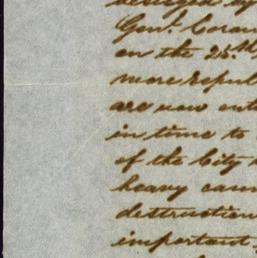 Genl. Coron
on the 25th
more repul
are now ent
in time to
of the City
heavy cann
destruction
important